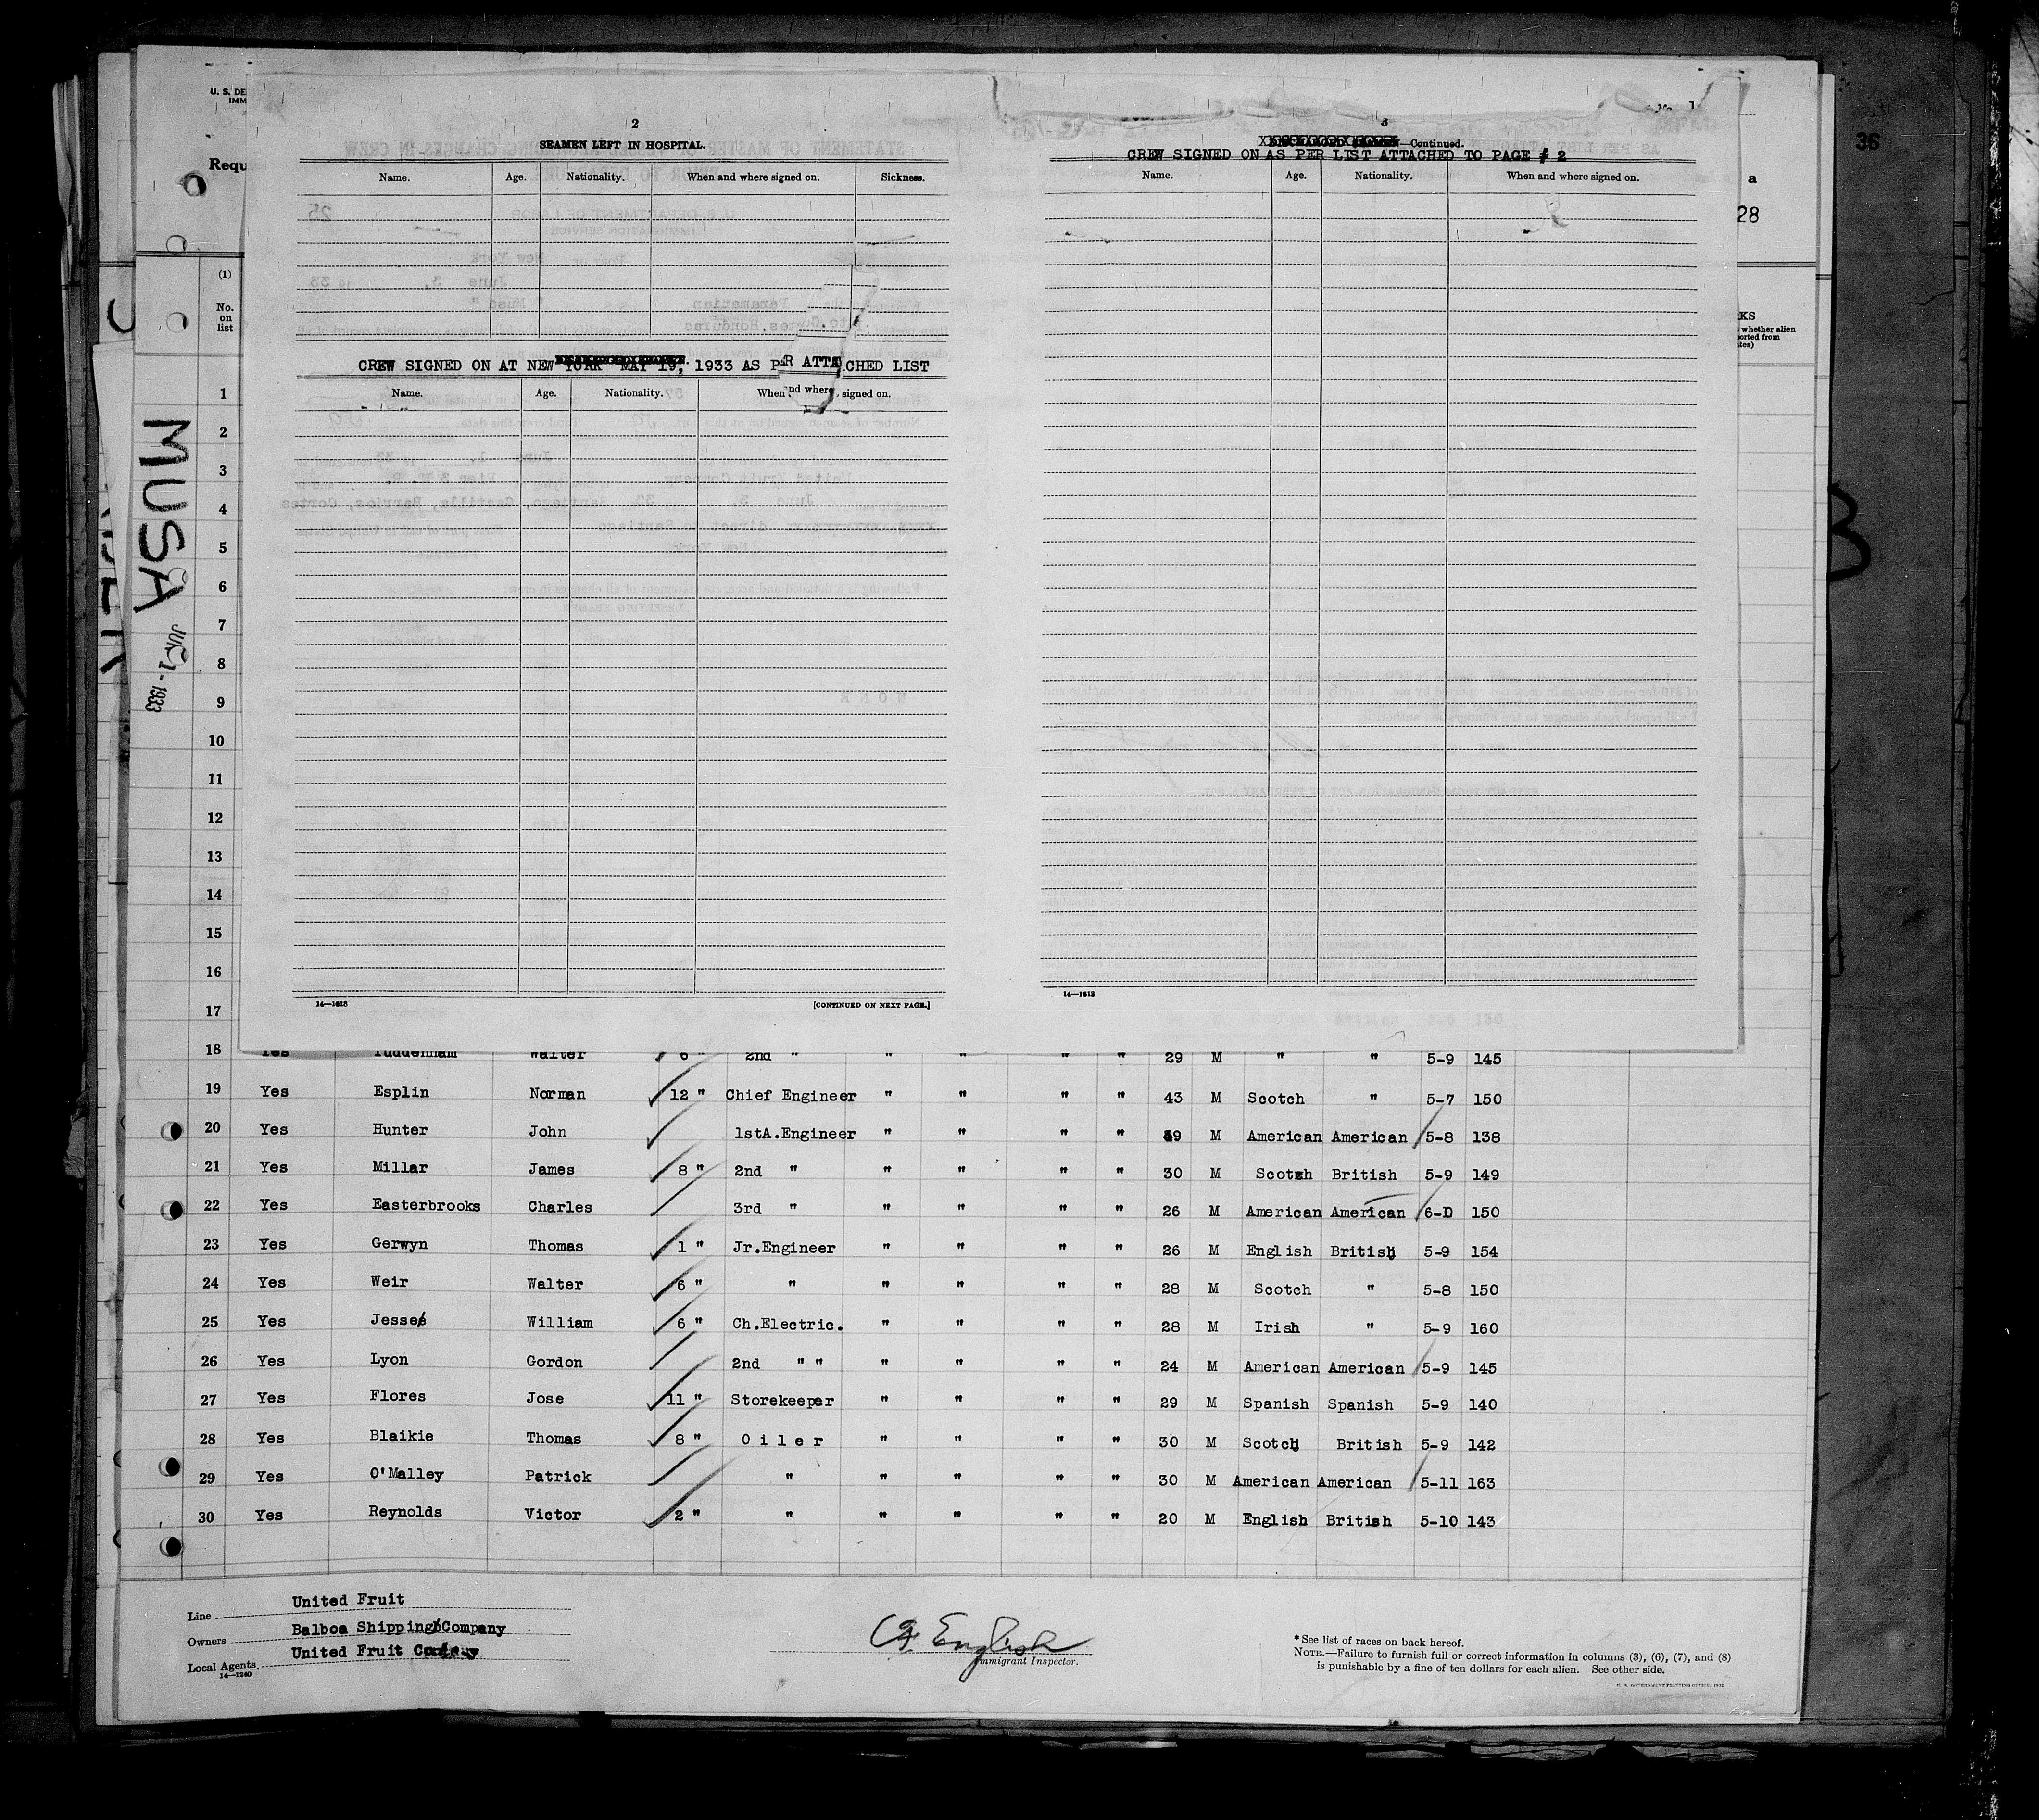 U. S. DE
IMM
Requ
36
a
28
2
SEAMEN LEFT IN HOSPITAL.
Name. Age. Nationality. When and where signed on. Sickness.
CREW SIGNED ON AT NEW YORK MAY 19, 1933 AS PER ATTACHED LIST
Name. Age. Nationality. When and where signed on.
14—1613
[CONTINUED ON NEXT PAGE.]
3
—Continued.
CREW SIGNED ON AS PER LIST ATTACHED TO PAGE # 2
Name. Age. Nationality. When and where signed on.
14—1613
KS
whether alien
ported from
ates)
MUSA
JUN 1 - 1933
(1)
No.
on
list
1
2
3
4
5
6
7
8
9
10
11
12
13
14
15
16
17
18 Yes Tuddenham Walter 6 " 2nd " " " " " 29 M " " 5-9 145
19 Yes Esplin Norman 12 " Chief Engineer " " " " 43 M Scotch " 5-7 150
20 Yes Hunter John 1stA.Engineer " " " " 49 M American American 5-8 138
21 Yes Millar James 8 " 2nd " " " " " 30 M Scotch British 5-9 149
22 Yes Easterbrooks Charles 3rd " " " " " 26 M American American 6-D 150
23 Yes Gerwyn Thomas 1 " Jr.Engineer " " " " 26 M English British 5-9 154
24 Yes Weir Walter 6 " " " " " " 28 M Scotch " 5-8 150
25 Yes Jesse William 6 " Ch.Electric. " " " " 28 M Irish " 5-9 160
26 Yes Lyon Gordon 2nd " " " " " " 24 M American American 5-9 145
27 Yes Flores Jose 11 " Storekeeper " " " " 29 M Spanish Spanish 5-9 140
28 Yes Blaikie Thomas 8 " Oiler " " " " 30 M Scotch British 5-9 142
29 Yes O'Malley Patrick " " " " " 30 M American American 5-11 163
30 Yes Reynolds Victor 2 " " " " " " 20 M English British 5-10 143
Line United Fruit
Owners Balboa Shipping Company
Local Agents United Fruit Company
14—1240
English
Immigrant Inspector.
* See list of races on back hereof.
NOTE.—Failure to furnish full or correct information in columns (3), (6), (7), and (8)
is punishable by a fine of ten dollars for each alien. See other side.